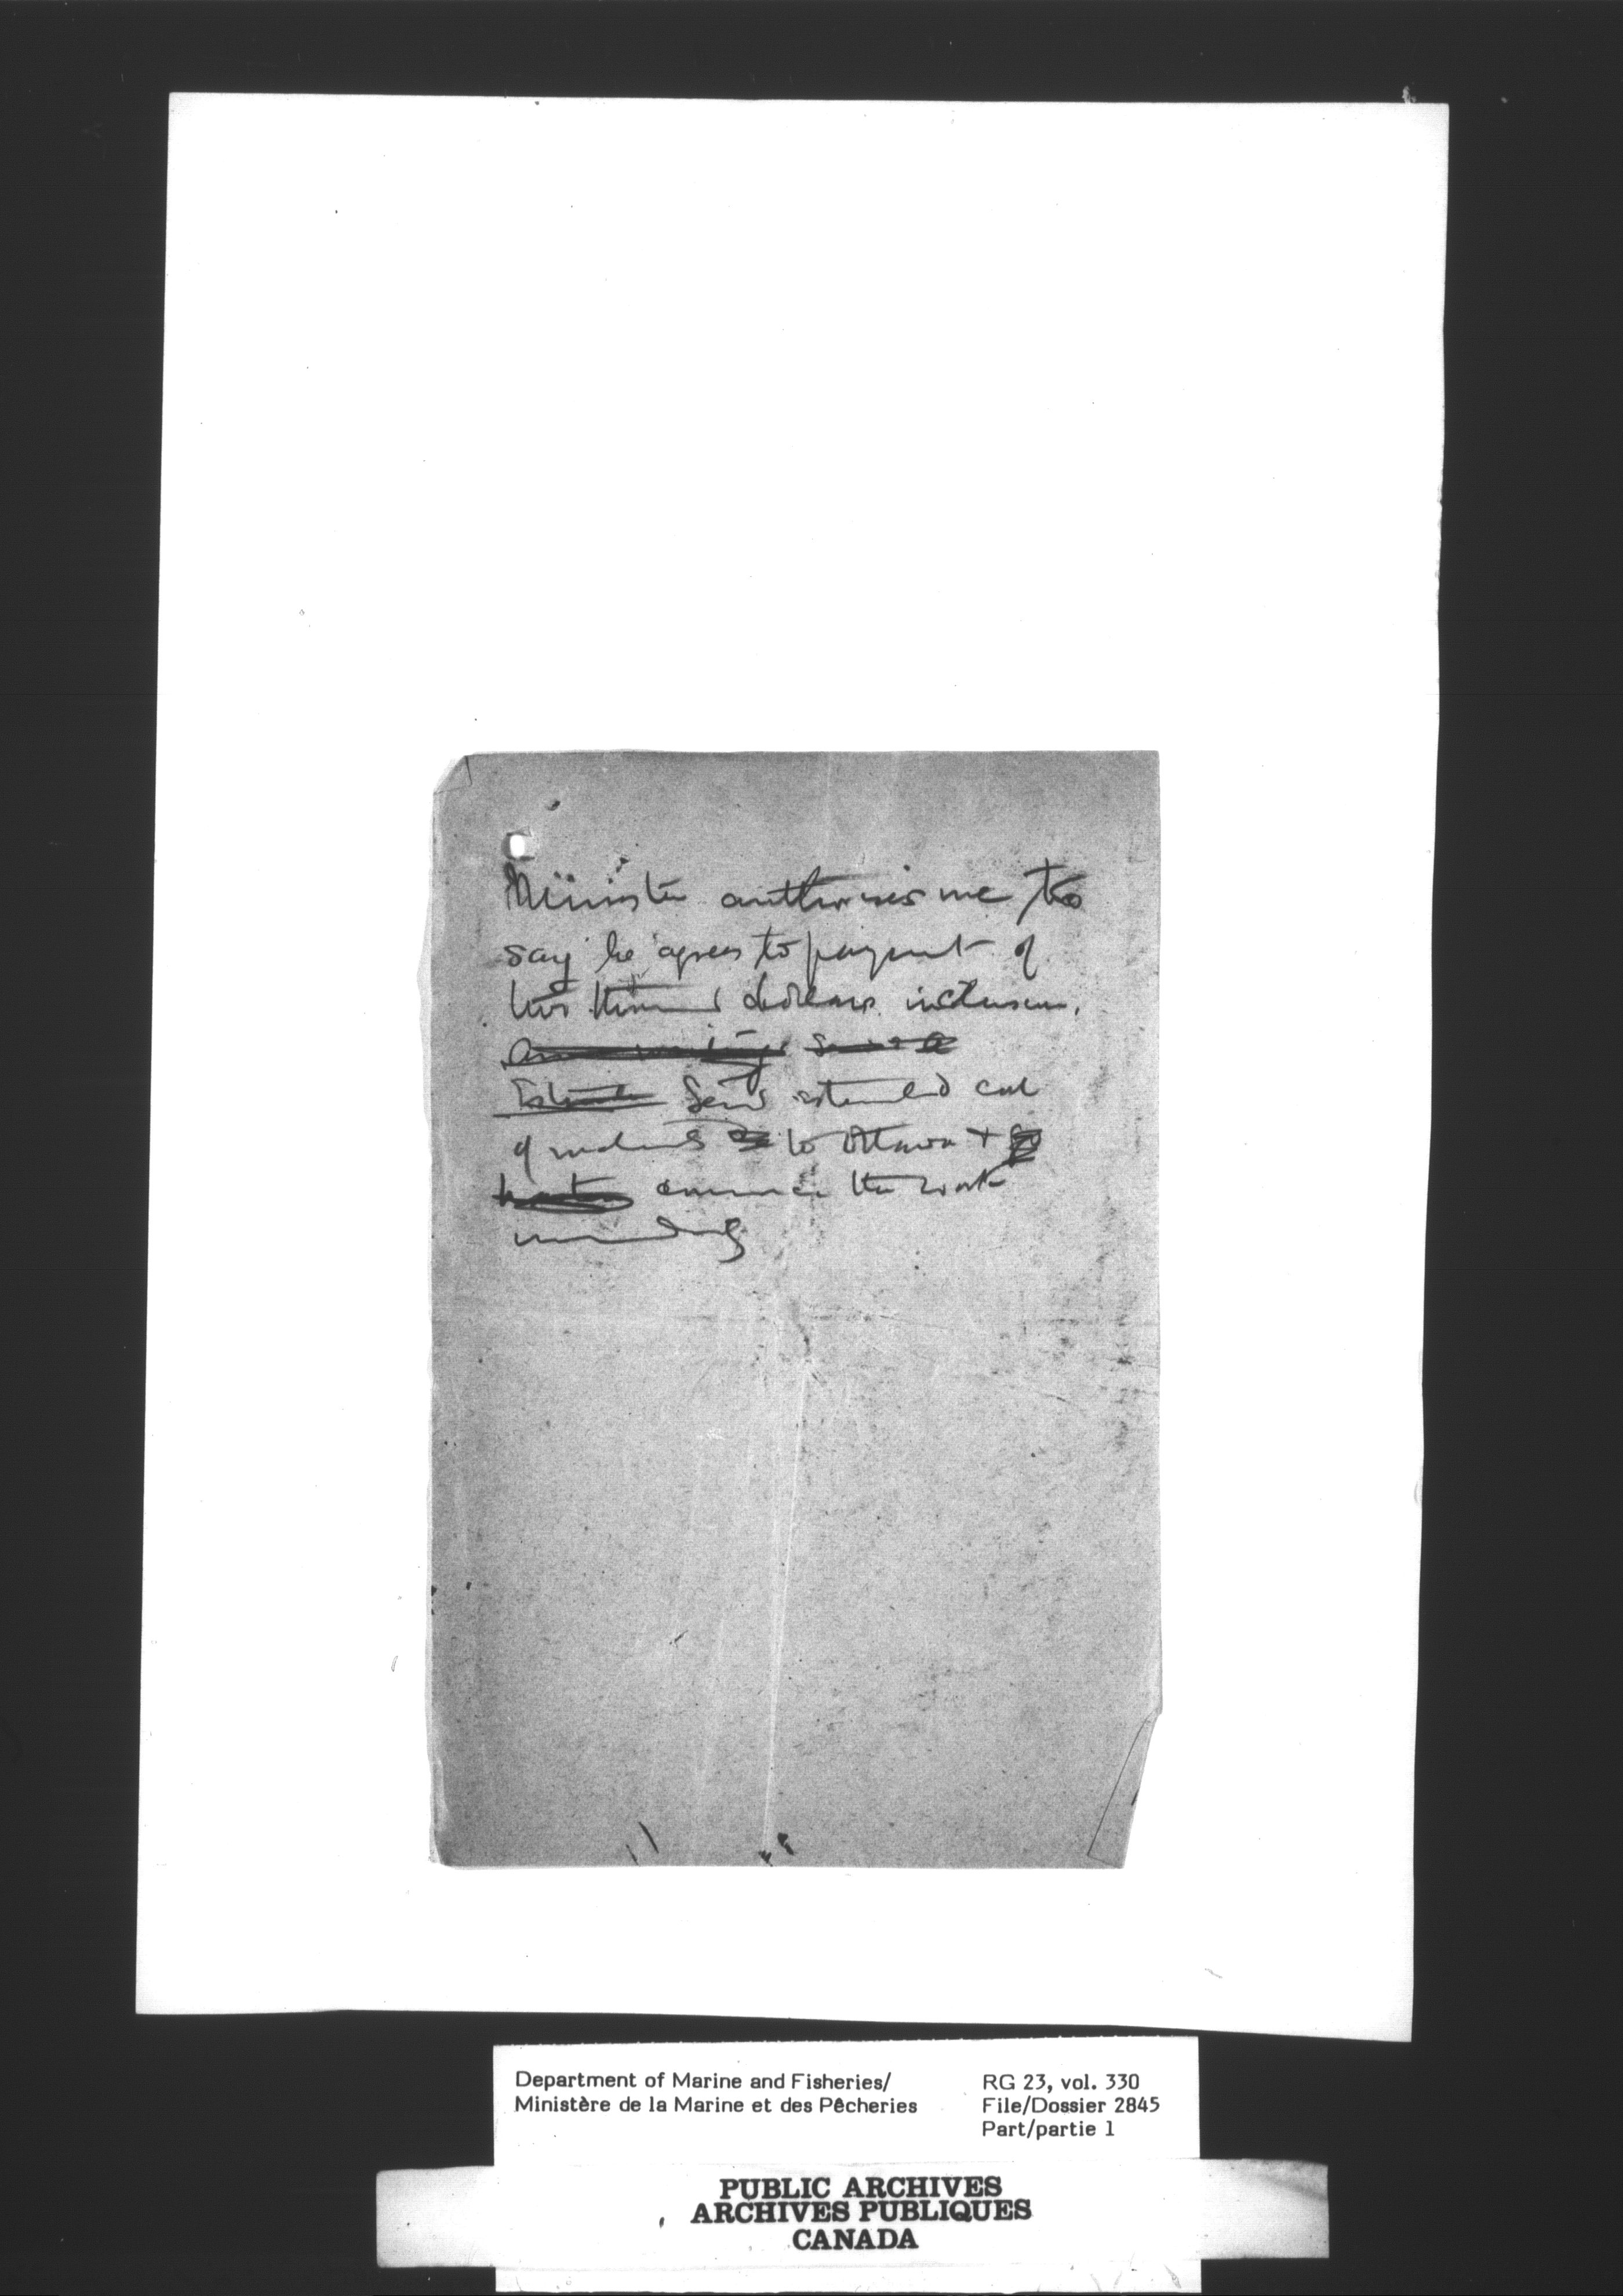 Minister authorises me to
say he agrees to payment of
two thousand dollars inclusive.
Send estimated cost
of to Ottawa +
commence the work
immediately
Department of Marine and Fisheries/
Ministère de la Marine et des Pêcheries
RG 23, vol. 330
File/Dossier 2845
Part/partie 1
PUBLIC ARCHIVES
ARCHIVES PUBLIQUES
CANADA